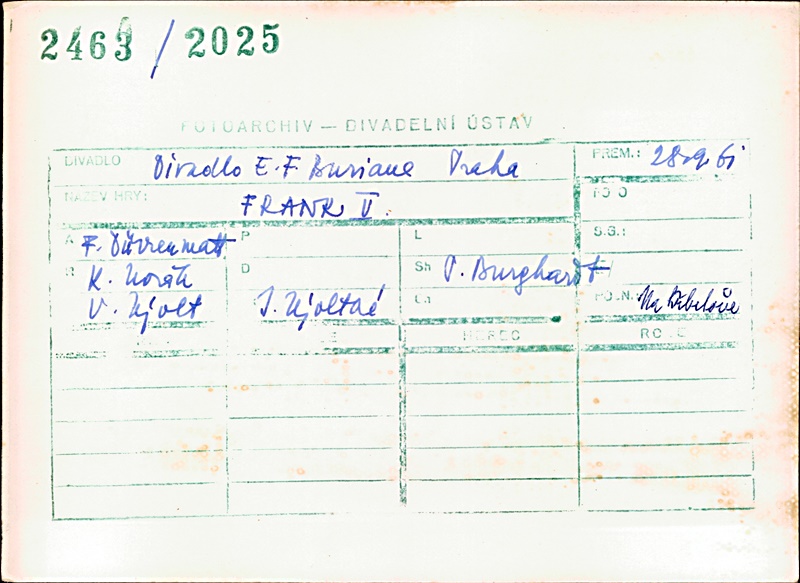 2463 / 2025
FOTOARCHIV — DIVADELNÍ ÚSTAV
DIVADLO Divadlo E. F. Buriana Praha PREM.: 28.9.61
NÁZEV HRY: FRANK V. FOTO
A F. Dürrenmatt P L S.S.:
R K. Novák D Sh P. Burghardt
V. Nývlt J. Nývltová Ch POZN.: Na
HEREC ROLE